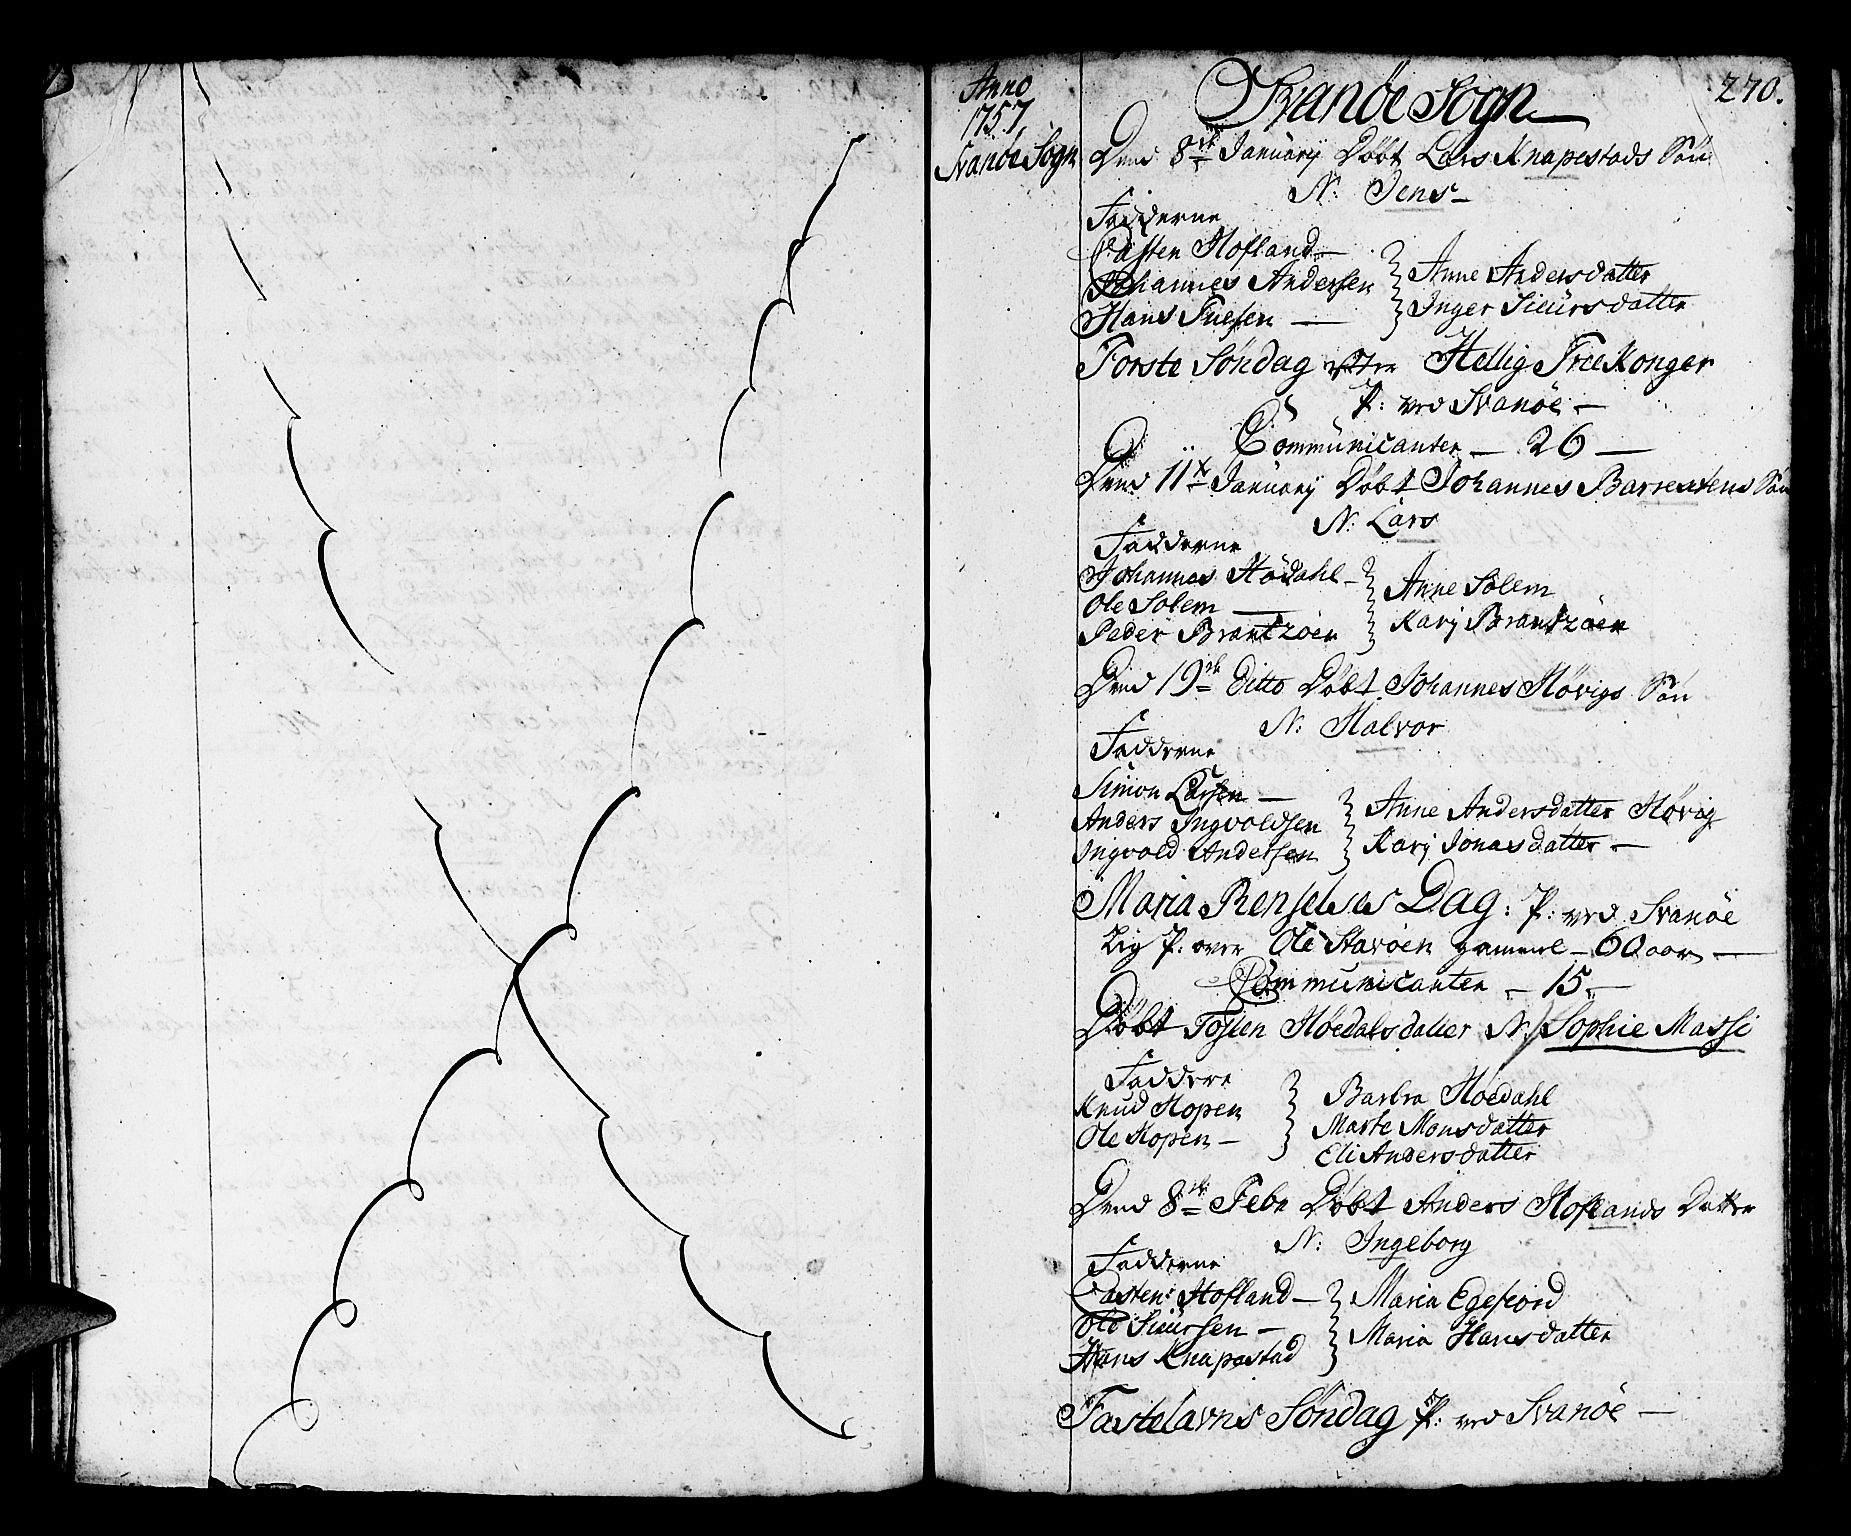 270.
Anno
1757
Svanöe Sogn
Svanöe Sogn
Dend 8de Januarij Döbt Lars Knapestads Sön
N: Jens
Fadderne
Casten Hofland
Johannes Andersen
Hans Suesen
Anne Andersdatter
Inger Sieursdatter
Forste Söndag efter Hellig Tree Konger
P: ved Svanöe
Communicanter 26
Dend 11te Januarij Döbt Johannes Barrestens Sön
N: Lars
Fadderne
Johannes Hödahl
Ole Solem
Peder Brantzöen
Anne Solem
Karj Brantzöen
Dend 19de Ditto Döbt Johannes Hövigs Sön
N: Halvor
Fadderne
Simon Larsen
Anders Ingvoldsen
Ingvold Andersen
Anne Andersdatter Hövig
Karj Jonasdatter
Maria Renselses Dag: P: ved Svanöe
Lig P: over Ole Stavöen gammel 60 aar
Communicanter 15
Döbt Tosten Höedals datter N: Sophie Massi
Faddere
Knud Hopen
Ole Hopen
Barbra Höedahl
Marte Monsdatter
Eli Andersdatter
Dend 8de Febr Döbt Anders Hoflands Datter
N: Ingeborg
Fadderne
Casten Hofland
Ole Sieursen
Hans Knapestad
Maria Egefiord
Maria Hansdatter
Fastelavns Söndag P: ved Svanöe